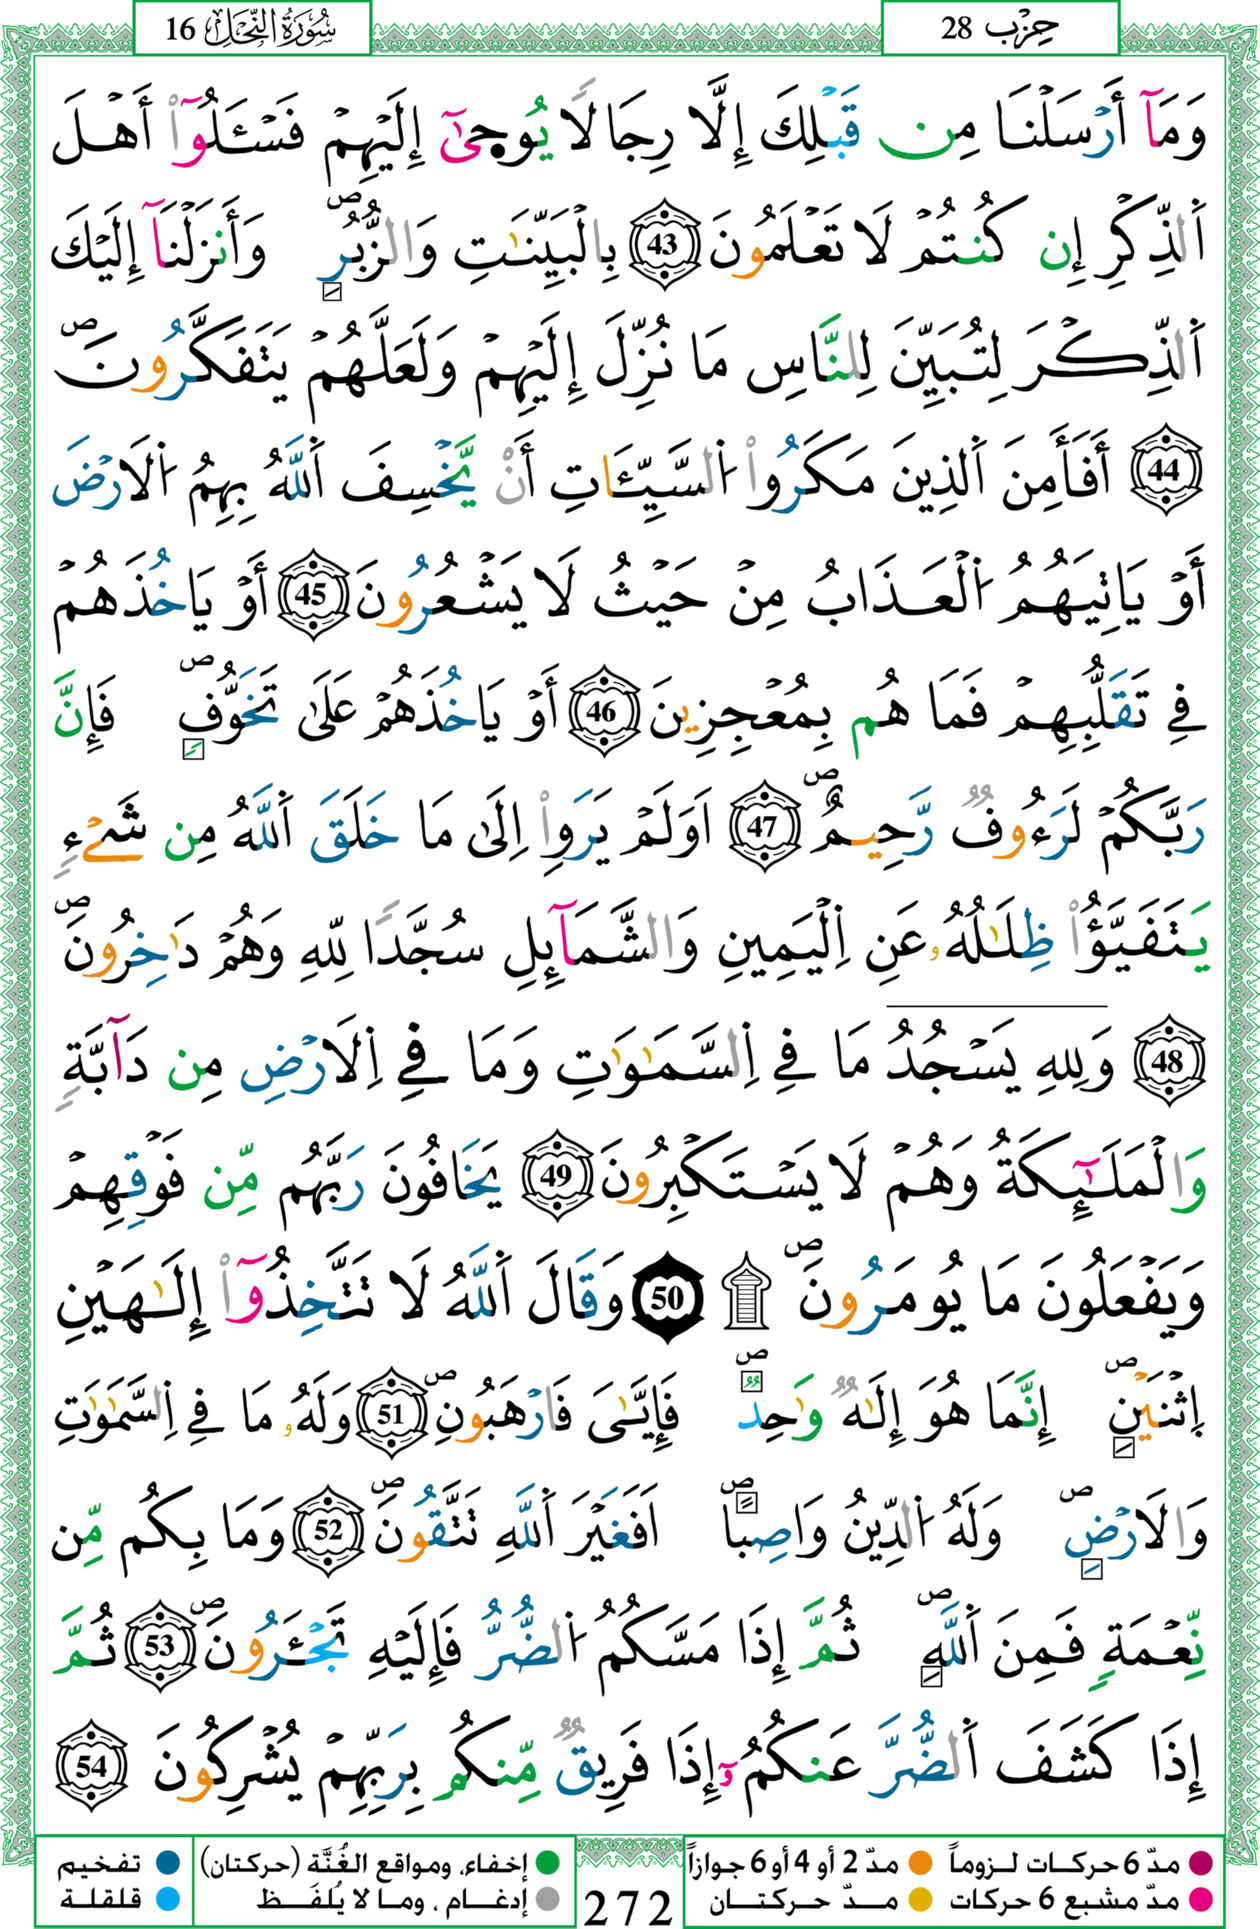 حِزْب 28
سُورَةُ النَّحْلِ 16
وَمَآ أَرْسَلْنَا مِن قَبْلِكَ إِلَّا رِجَالًا يُوحَىٰٓ إِلَيْهِمْ فَسْـَٔلُوٓا۟ أَهْلَ
اَ۬لذِّكْرِ إِن كُنتُمْ لَا تَعْلَمُونَ 43 بِالْبَيِّنَٰتِ وَالزُّبُرِ ص وَأَنزَلْنَآ إِلَيْكَ
اَ۬لذِّكْرَ لِتُبَيِّنَ لِلنَّاسِ مَا نُزِّلَ إِلَيْهِمْ وَلَعَلَّهُمْ يَتَفَكَّرُونَ ص
44 أَفَأَمِنَ اَ۬لذِينَ مَكَرُوا۟ اُ۬لسَّيِّـَٔاتِ أَنْ يَّخْسِفَ اَ۬للَّهُ بِهِمُ اُ۬لَارْضَ
أَوْ يَاتِيَهُمُ اُ۬لْعَذَابُ مِنْ حَيْثُ لَا يَشْعُرُونَ 45 أَوْ يَاخُذَهُمْ
فِے تَقَلُّبِهِمْ فَمَا هُم بِمُعْجِزِينَ 46 أَوْ يَاخُذَهُمْ عَلَىٰ تَخَوُّفٍ ص فَإِنَّ
رَبَّكُمْ لَرَءُوفٌ رَّحِيمٌ ص 47 اَوَلَمْ يَرَوِا۟ اِلَىٰ مَا خَلَقَ اَ۬للَّهُ مِن شَےْءٍ
يَتَفَيَّؤُا۟ ظِلَٰلُهُۥ عَنِ اِ۬لْيَمِينِ وَالشَّمَآئِلِ سُجَّدًا لِّلهِ وَهُمْ دَٰخِرُونَ ص
48 وَلِلهِ يَسْجُدُ مَا فِے اِ۬لسَّمَٰوَٰتِ وَمَا فِے اِ۬لَارْضِ مِن دَآبَّةٍ
وَالْمَلَٰٓئِكَةُ وَهُمْ لَا يَسْتَكْبِرُونَ 49 يَخَافُونَ رَبَّهُم مِّن فَوْقِهِمْ
وَيَفْعَلُونَ مَا يُومَرُونَ ص ۩ 50 وَقَالَ اَ۬للَّهُ لَا تَتَّخِذُوٓا۟ إِلَٰهَيْنِ
اِثْنَيْنِ ص إِنَّمَا هُوَ إِلَٰهٌ وَٰحِدٌ ص فَإِيَّٰىَ فَارْهَبُونِ ص 51 وَلَهُۥ مَا فِے اِ۬لسَّمَٰوَٰتِ
وَالَارْضِ ص وَلَهُ اُ۬لدِّينُ وَاصِبًا ص اَفَغَيْرَ اَ۬للَّهِ تَتَّقُونَ ص 52 وَمَا بِكُم مِّن
نِّعْمَةٍ فَمِنَ اَ۬للَّهِ ص ثُمَّ إِذَا مَسَّكُمُ اُ۬لضُّرُّ فَإِلَيْهِ تَجْـَٔرُونَ ص 53 ثُمَّ
إِذَا كَشَفَ اَ۬لضُّرَّ عَنكُمُۥٓ إِذَا فَرِيقٌ مِّنكُم بِرَبِّهِمْ يُشْرِكُونَ 54
مدّ 6 حركات لـزوماً مدّ 2 أو 4 أو 6 جوازاً إخفاء، ومواقع الغُنَّة (حركتان) تفخيم
مدّ مشبع 6 حركات مـــدّ حركتــان إدغــام ، ومـا لا يُلفَــظ قلقلة
272